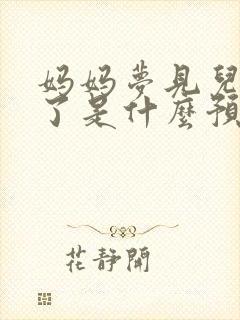 妈妈夢見兒
了是什麼預
花靜開